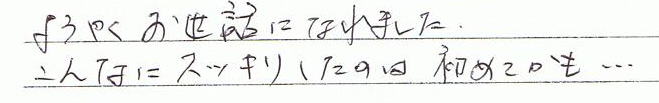 ようやくお世話になれました.
こんなにスッキリしたのは初めてかも…